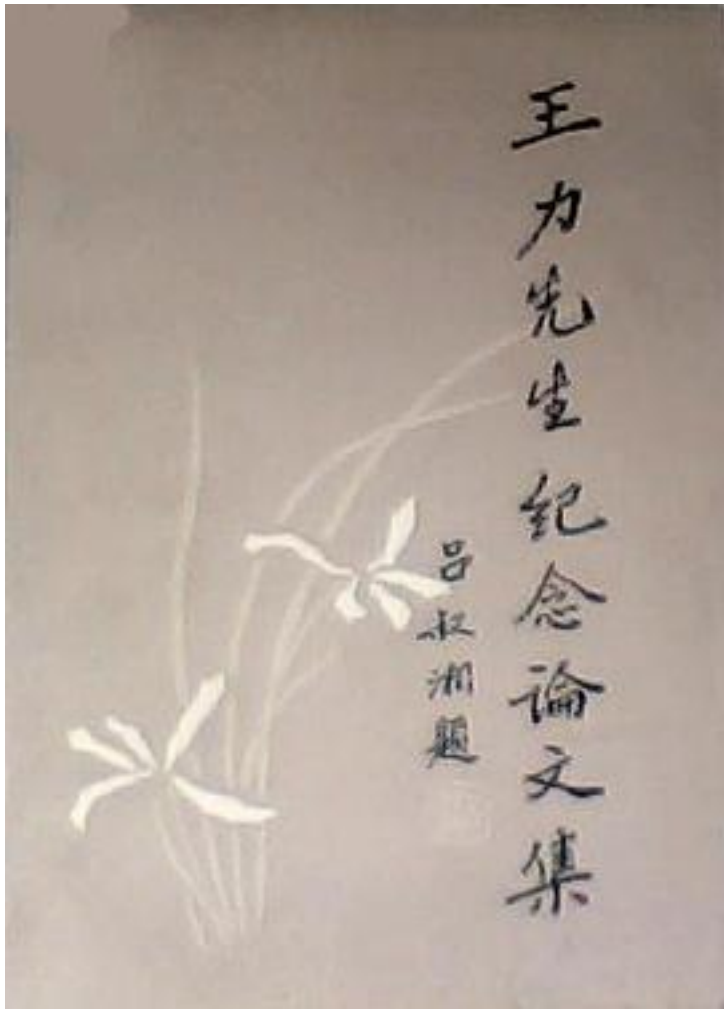 王力先生纪念論文集
吕叔湘题